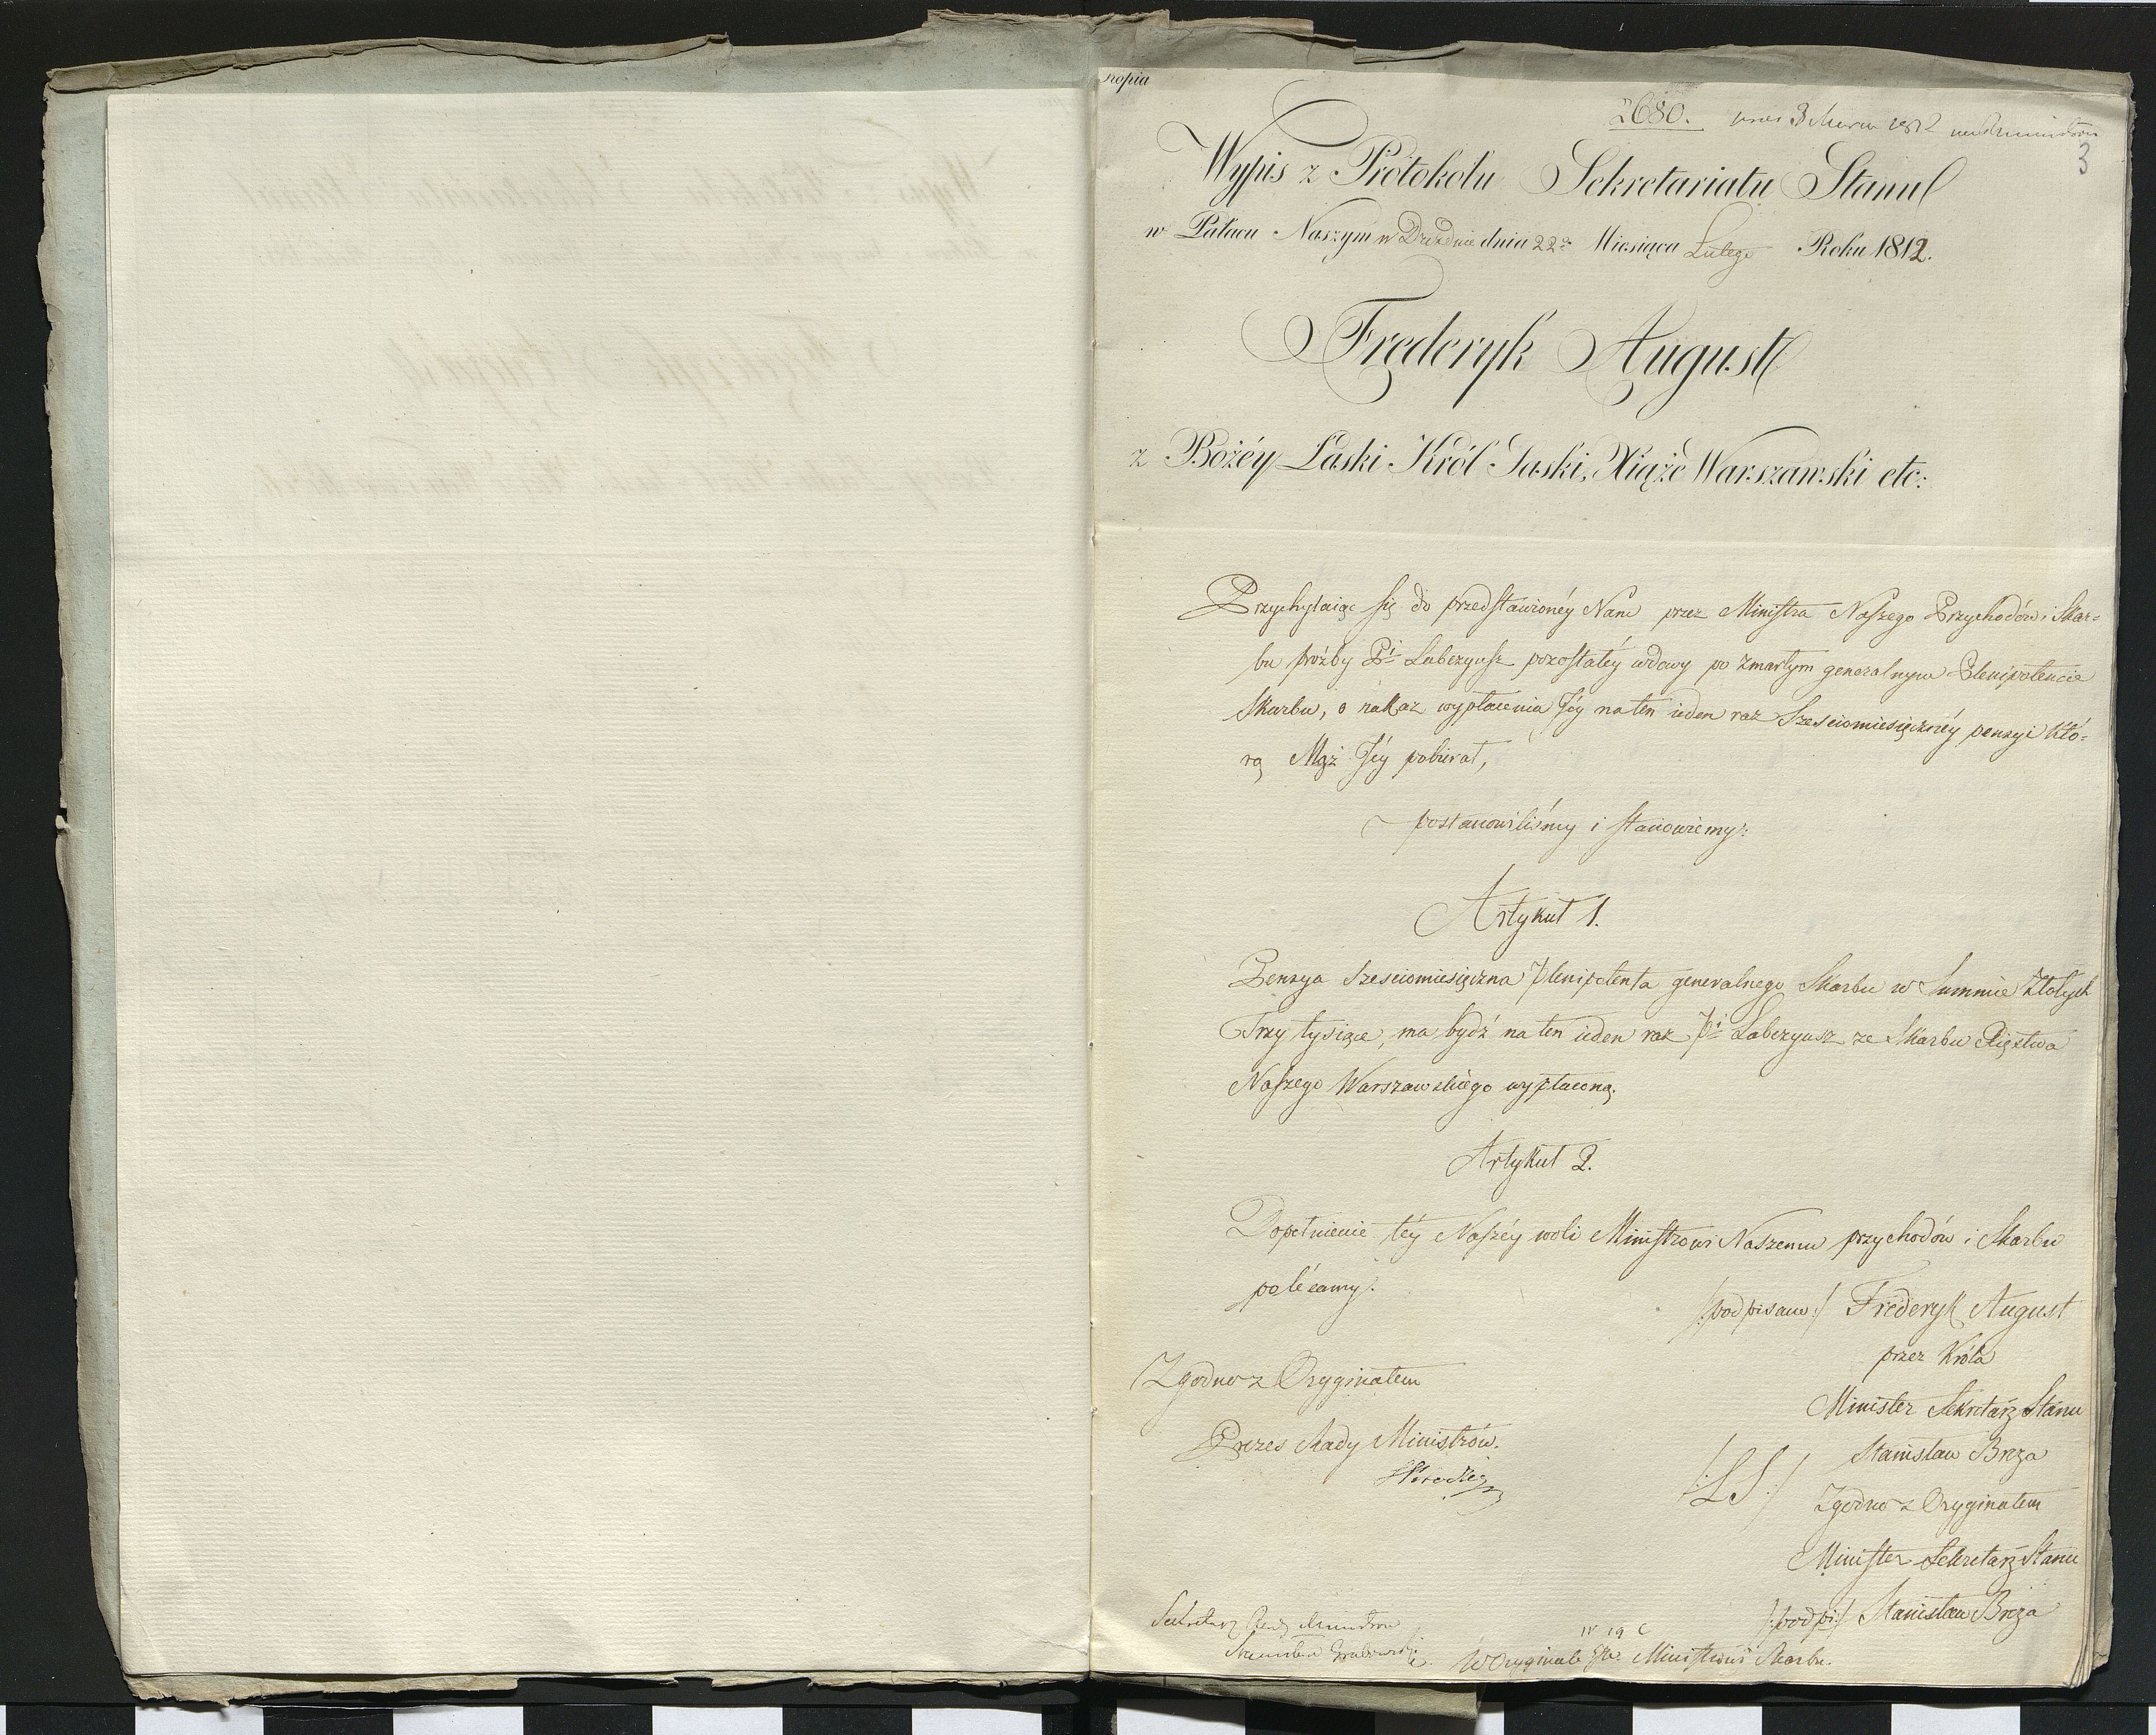 kopia
2680. 1812
3
Wypis z Protokołu Sekretariatu Stanu
w Pałacu Naszym w Dreźnie dnia 22º Miesiąca Lutego Roku 1812.
Frederyk August
z Bożéy Łaski Król Saski, Xiąże Warszawski etc:
Przychylaiąc się do przedstawionéy Nam przez Ministra Naszego Przychodów i Skar=
bu proźby Pi Labezyusz pozostałéy wdowy po zmarłym generalnym Plenipotencie
Skarbu, o nakaz wypłacenia Jéy na ten ieden raz Sześciomiesięcznéy pensyi któ=
rą Mąż Jéy pobierał,
postanowiliśmy i stanowiemy:
Artykuł 1.
Pensya Sześciomiesięczna Plenipotenta generalnego Skarbu w Summie Złotych
Trzy tysiące, ma bydź na ten ieden raz Pi Labezyusz ze Skarbu Xięstwa
Naszego Warszawskiego wypłaconą.
Artykuł 2.
Dopełnienie téy Naszéy woli Ministrowi Naszemu przychodów i Skarbu
polécamy.
/:podpisano:/ Frederyk August
przez Króla
Minister Sekretarz Stanu
Stanisław Breza
/:LS:/
Zgodno z Oryginałem
Minister Sekretarz Stanu
/:podpi:/ Stanisław Breza
Zgodno z Oryginałem
Prezes Rady Ministrów.
Sekretarz Rady Ministrów
Stanisław Grabowski
W Oryginale JW. Ministrowi Skarbu.